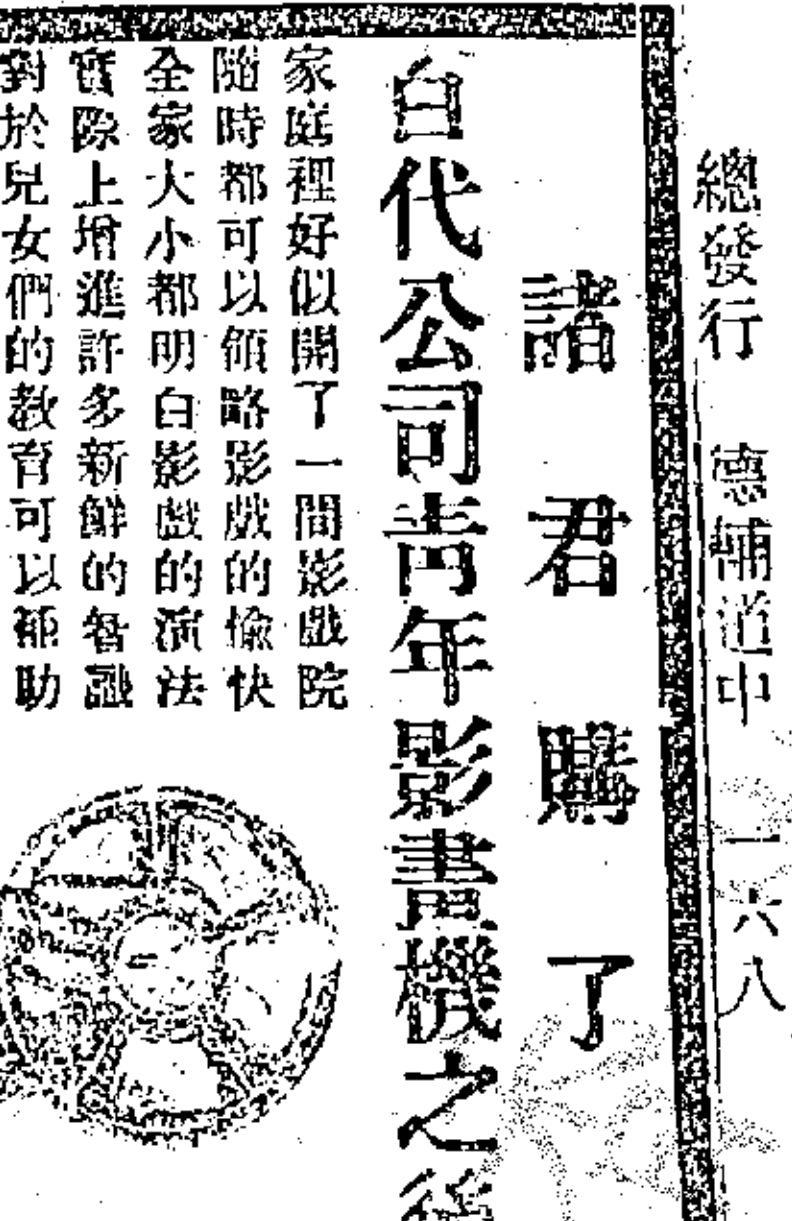 總發行 德輔道中 一六八
諸君購了
百代公司青年影畫機之後
家庭裡好似開了一間影戲院
隨時都可以領略影戲的愉快
全家大小都明白影戲的演法
實際上增進許多新鮮的智識
對於兒女們的教育可以補助